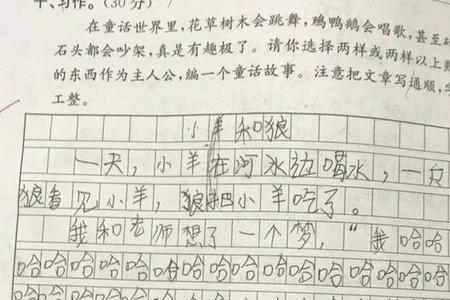 十、习作。(30分)
在童话世界里,花草树木会跳舞,鸡鸭鹅会唱歌,甚至
石头都会吵架,真是有趣极了。请你选择两样或两样以上
的东西作为主人公,编一个童话故事。注意把文章写通顺,
工整。
小羊和狼
一天,小羊在河水边喝水,一只
狼看见小羊,狼把小羊吃了。
我和老师想了一个梦,“我哈哈
哈哈哈哈哈哈哈哈哈哈哈哈哈哈